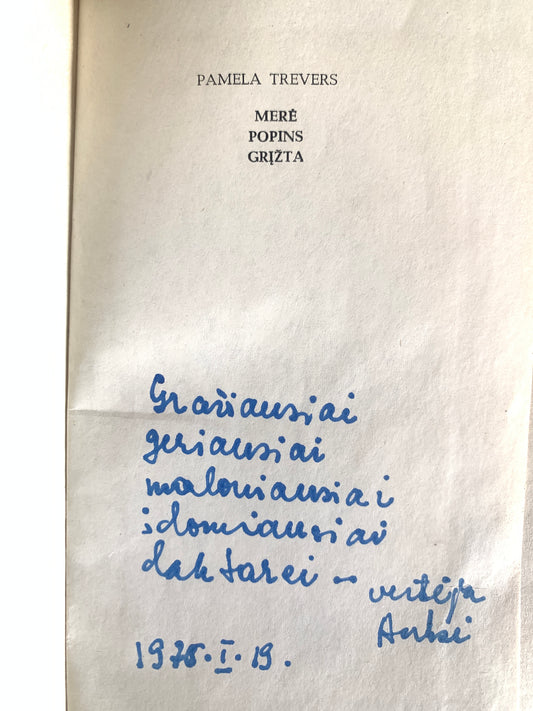 PAMELA TREVERS
MERĖ
POPINS
GRĮŽTA
Gražiausiai
geriausiai
maloniausiai
įdomiausiai
daktarei – vertėja
1978.I.19.